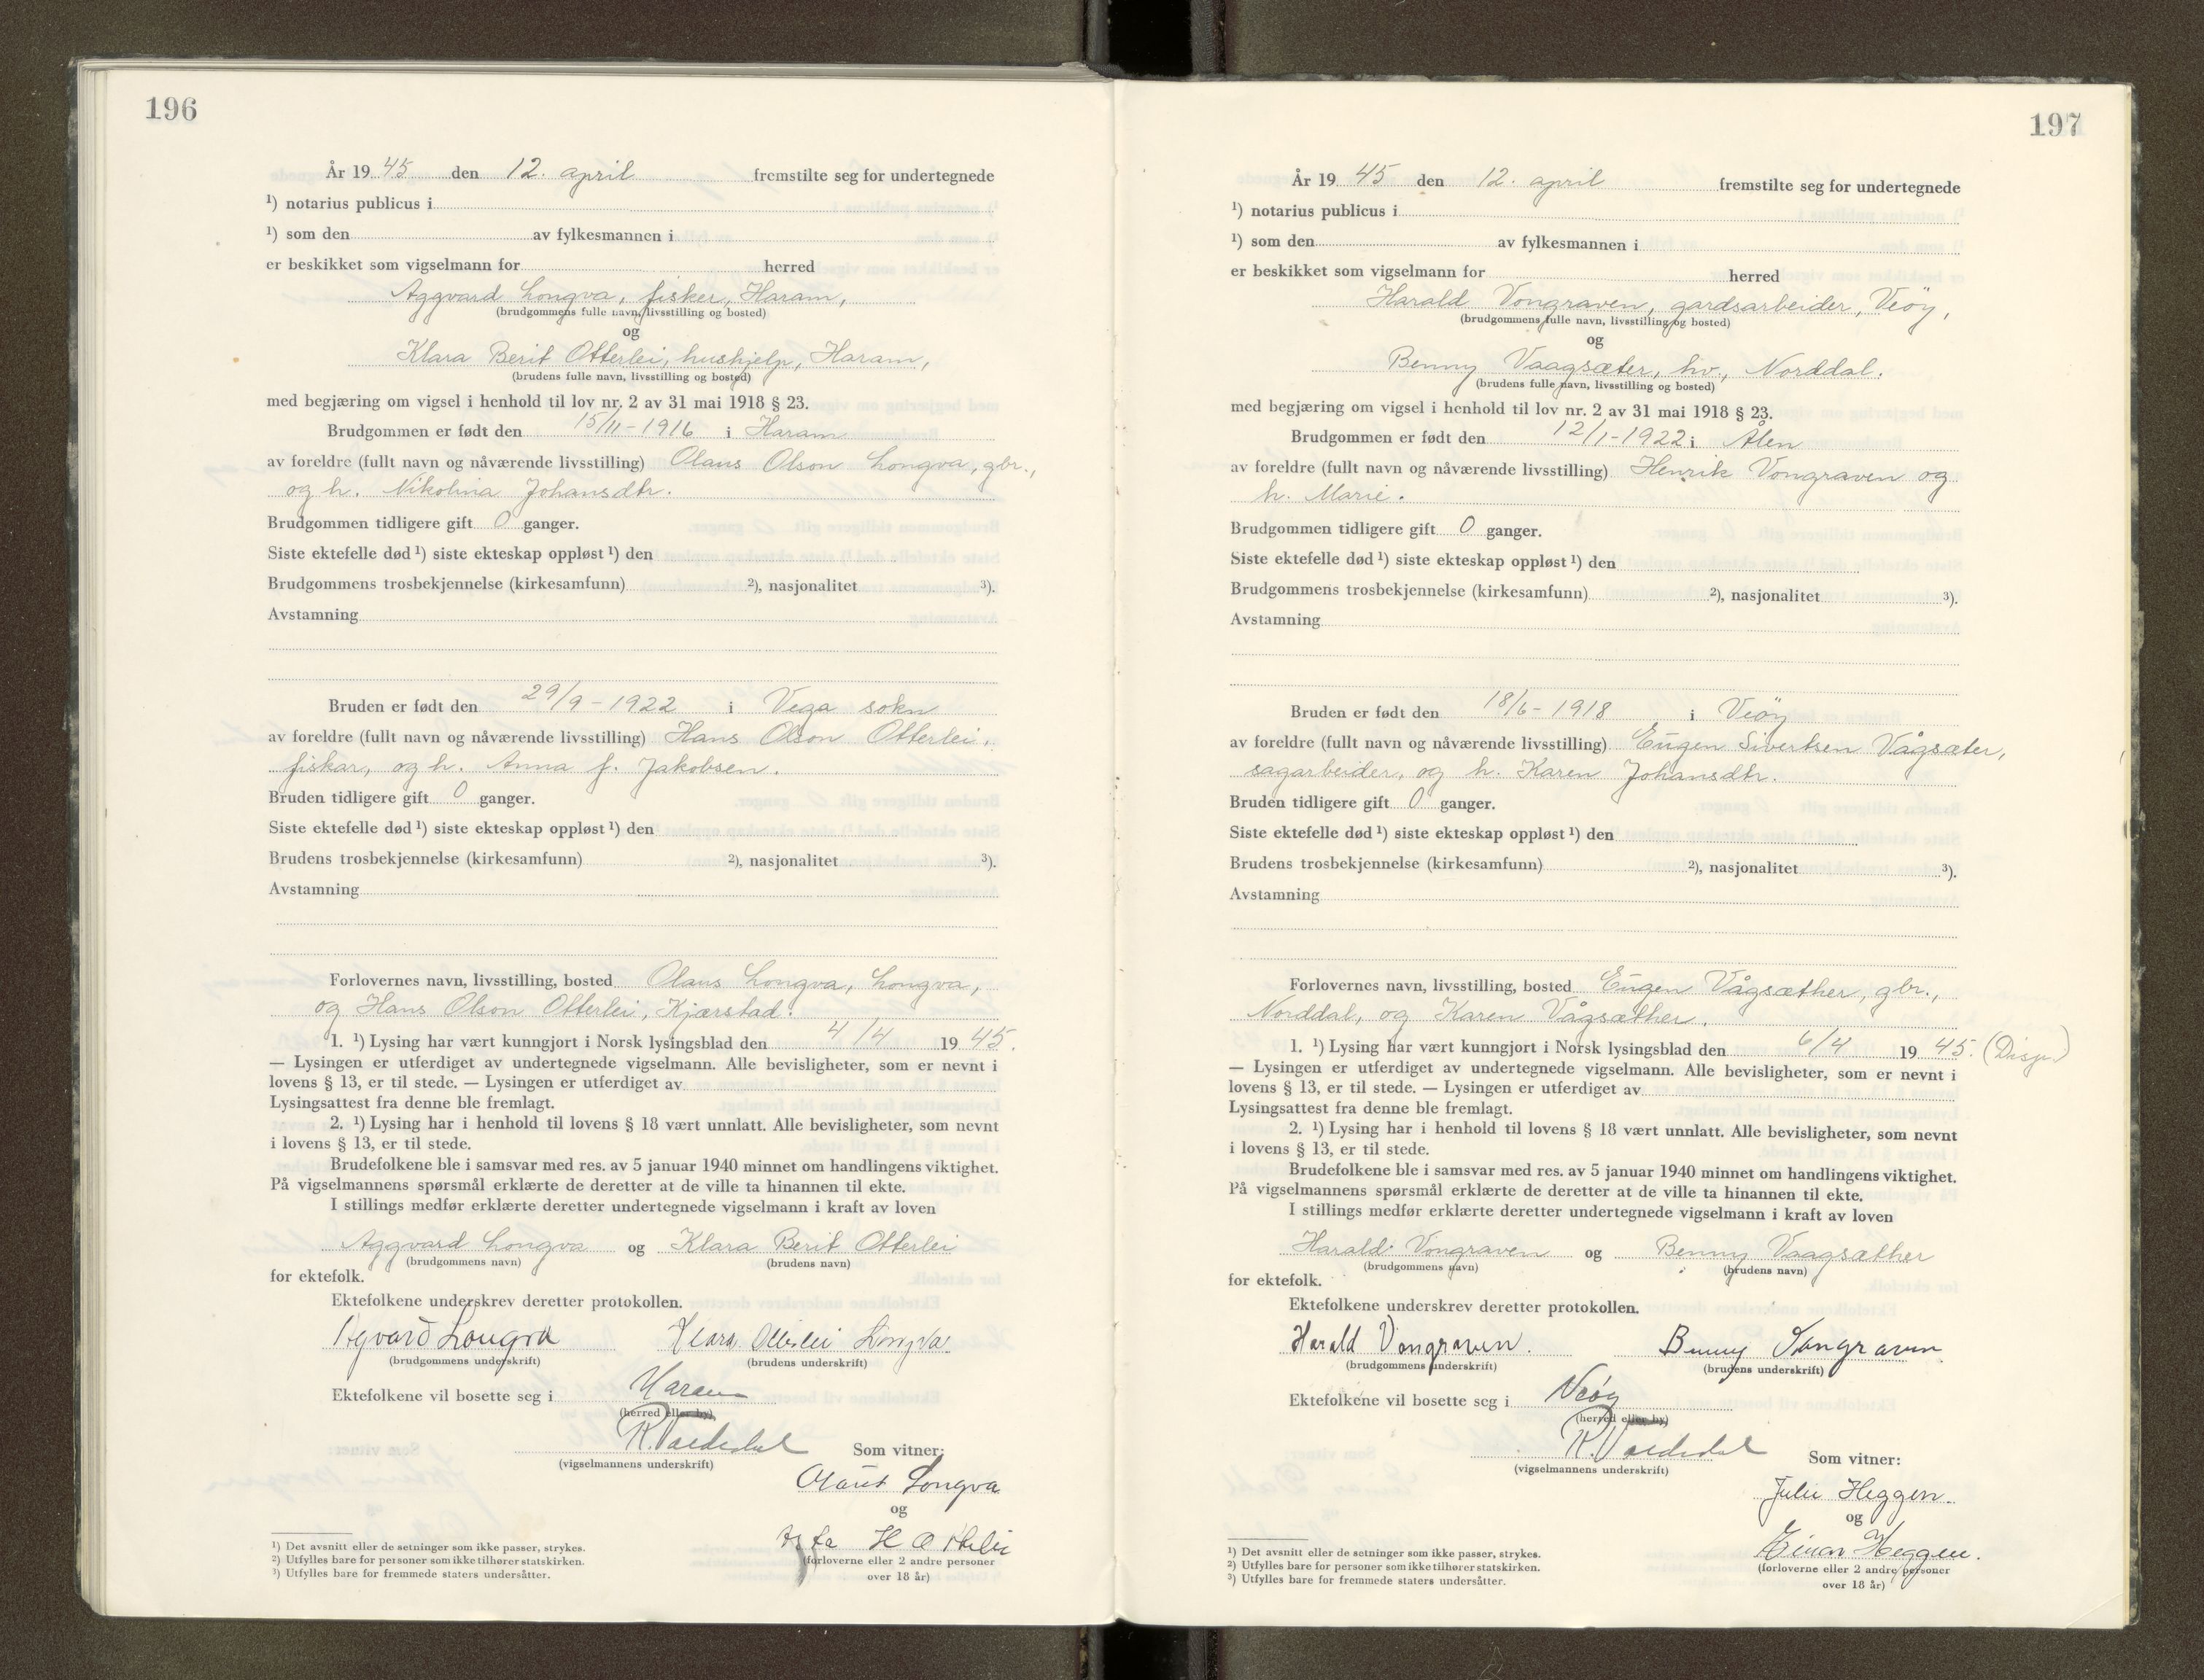 196
År 19 45 den 12. april fremstilte seg for undertegnede
¹) notarius publicus i
¹) som den av fylkesmannen i
er beskikket som vigselmann for herred
Aggvard Longva, fisker, Haram,
(brudgommens fulle navn, livsstilling og bosted)
og
Klara Berit Otterlei, hushjelp, Haram,
(brudens fulle navn, livsstilling og bosted)
med begjæring om vigsel i henhold til lov nr. 2 av 31 mai 1918 § 23.
Brudgommen er født den 15/11-1916 i Haram
av foreldre (fullt navn og nåværende livsstilling) Olaus Olson Longva, gbr.,
og h. Nikolina Johansdtr.
Brudgommen tidligere gift 0 ganger.
Siste ektefelle død ¹) siste ekteskap oppløst ¹) den
Brudgommens trosbekjennelse (kirkesamfunn) ²), nasjonalitet ³).
Avstamning
Bruden er født den 29/9-1922 i Vega sokn
av foreldre (fullt navn og nåværende livsstilling) Hans Olson Otterlei,
fiskar, og h. Anna f. Jakobsen.
Bruden tidligere gift 0 ganger.
Siste ektefelle død ¹) siste ekteskap oppløst ¹) den
Brudens trosbekjennelse (kirkesamfunn) ²), nasjonalitet ³).
Avstamning
Forlovernes navn, livsstilling, bosted Olaus Longva, Longva,
og Hans Olson Otterlei, Kjærstad.
1. ¹) Lysing har vært kunngjort i Norsk lysingsblad den 4/4 19 45.
— Lysingen er utferdiget av undertegnede vigselmann. Alle bevisligheter, som er nevnt i
lovens § 13, er til stede. — Lysingen er utferdiget av
Lysingsattest fra denne ble fremlagt.
2. ¹) Lysing har i henhold til lovens § 18 vært unnlatt. Alle bevisligheter, som nevnt
i lovens § 13, er til stede.
Brudefolkene ble i samsvar med res. av 5 januar 1940 minnet om handlingens viktighet.
På vigselmannens spørsmål erklærte de deretter at de ville ta hinannen til ekte.
I stillings medfør erklærte deretter undertegnede vigselmann i kraft av loven
Aggvard Longva og Klara Berit Otterlei
(brudgommens navn) (brudens navn)
for ektefolk.
Ektefolkene underskrev deretter protokollen.
Agvard Longva Klara Otterlei Longva
(brudgommens underskrift) (brudens underskrift)
Ektefolkene vil bosette seg i Haram
(herred eller by)
(vigselmannens underskrift)
Som vitner:
Longva
og
(forloverne eller 2 andre personer
over 18 år)
¹) Det avsnitt eller de setninger som ikke passer, strykes.
²) Utfylles bare for personer som ikke tilhører statskirken.
³) Utfylles bare for fremmede staters undersåtter.
197
År 19 45 den 12. april fremstilte seg for undertegnede
¹) notarius publicus i
¹) som den av fylkesmannen i
er beskikket som vigselmann for herred
Harald Vongraven, gardsarbeider, Veöy,
(brudgommens fulle navn, livsstilling og bosted)
og
Benny Vaagsæter, hv., Norddal.
(brudens fulle navn, livsstilling og bosted)
med begjæring om vigsel i henhold til lov nr. 2 av 31 mai 1918 § 23.
Brudgommen er født den 12/1-1922 i Ålen
av foreldre (fullt navn og nåværende livsstilling) Henrik Vongraven og
h. Marie.
Brudgommen tidligere gift 0 ganger.
Siste ektefelle død ¹) siste ekteskap oppløst ¹) den
Brudgommens trosbekjennelse (kirkesamfunn) ²), nasjonalitet ³).
Avstamning
Bruden er født den 18/6-1918 i Veöy
av foreldre (fullt navn og nåværende livsstilling) Eugen Sivertsen Vågsæter,
sagarbeider, og h. Karen Johansdtr.
Bruden tidligere gift 0 ganger.
Siste ektefelle død ¹) siste ekteskap oppløst ¹) den
Brudens trosbekjennelse (kirkesamfunn) ²), nasjonalitet ³).
Avstamning
Forlovernes navn, livsstilling, bosted Eugen Vågsæther, gbr.,
Norddal, og Karen Vågsæther.
1. ¹) Lysing har vært kunngjort i Norsk lysingsblad den 6/4 19 45. (Disp.)
— Lysingen er utferdiget av undertegnede vigselmann. Alle bevisligheter, som er nevnt i
lovens § 13, er til stede. — Lysingen er utferdiget av
Lysingsattest fra denne ble fremlagt.
2. ¹) Lysing har i henhold til lovens § 18 vært unnlatt. Alle bevisligheter, som nevnt
i lovens § 13, er til stede.
Brudefolkene ble i samsvar med res. av 5 januar 1940 minnet om handlingens viktighet.
På vigselmannens spørsmål erklærte de deretter at de ville ta hinannen til ekte.
I stillings medfør erklærte deretter undertegnede vigselmann i kraft av loven
Harald Vongraven og Benny Vaagsæther
(brudgommens navn) (brudens navn)
for ektefolk.
Ektefolkene underskrev deretter protokollen.
Harald Vongraven. Benny Vongraven
(brudgommens underskrift) (brudens underskrift)
Ektefolkene vil bosette seg i Veöy
(herred eller by)
(vigselmannens underskrift)
Som vitner:
Julie Heggen.
og
Einar Heggen.
(forloverne eller 2 andre personer
over 18 år)
¹) Det avsnitt eller de setninger som ikke passer, strykes.
²) Utfylles bare for personer som ikke tilhører statskirken.
³) Utfylles bare for fremmede staters undersåtter.